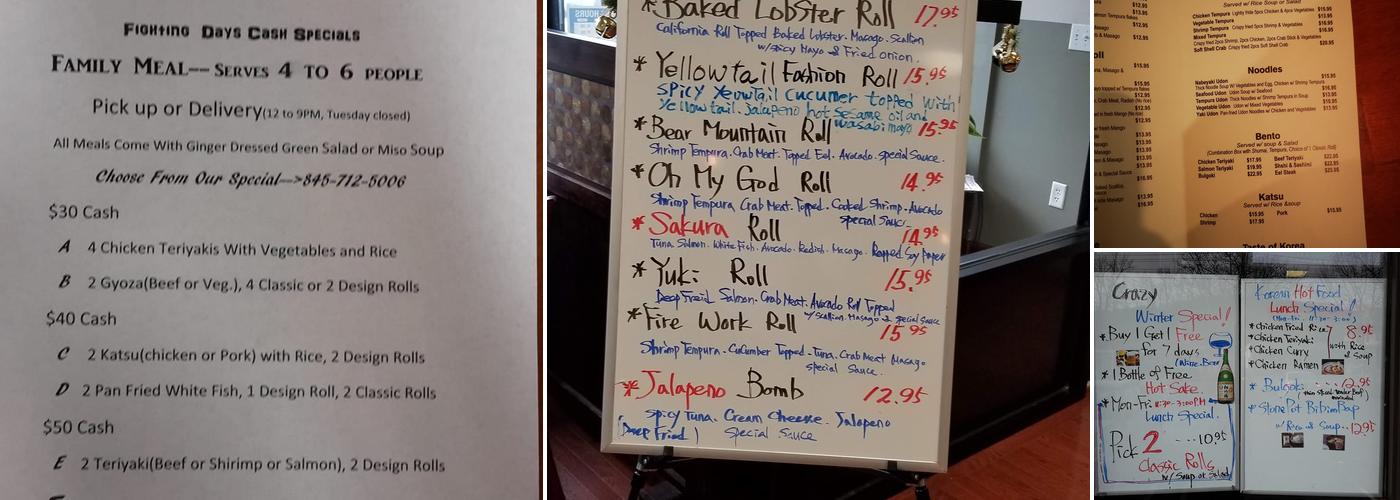 Fighting Days Cash Specials
Family Meal-- Serves 4 to 6 people
Pick up or Delivery(12 to 9PM, Tuesday closed)
All Meals Come With Ginger Dressed Green Salad or Miso Soup
Choose From Our Special-->845-712-5006
$30 Cash
A 4 Chicken Teriyakis With Vegetables and Rice
B 2 Gyoza(Beef or Veg.), 4 Classic or 2 Design Rolls
$40 Cash
C 2 Katsu(chicken or Pork) with Rice, 2 Design Rolls
D 2 Pan Fried White Fish, 1 Design Roll, 2 Classic Rolls
$50 Cash
E 2 Teriyaki(Beef or Shirimp or Salmon), 2 Design Rolls
* Baked Lobster Roll 17.95
California Roll Topped Baked Lobster. Masago. Scallion
w/spicy Mayo & Fried onion.
* Yellowtail Fashion Roll 15.95
Spicy Yellowtail Cucumber topped with
Yellowtail. Jalapeno hot sesame oil and
wasabi mayo
* Bear Mountain Roll 15.95
Shrimp Tempura. Crab Meat. Topped Eel. Avocado. special Sauce.
* Oh My God Roll 14.95
Shrimp Tempura Crab Meat. Topped. Cooked Shrimp. Avocado
special Sauce
* Sakura Roll 14.95
Tuna Salmon. White Fish. Avocado. Redish. Masago. Rapped Soy Paper
* Yuki Roll 15.95
Deep Freid Salmon. Crab Meat. Avocado Roll Topped
w/Scallion. Masago & special Sauce
* Fire Work Roll 15.95
Shrimp Tempura. Cucumber Topped. Tuna. Crab Meat Masago.
special Sauce.
* Jalapeno Bomb 12.95
Spicy Tuna. Cream Cheese. Jalapeno
(Deep Fried) Special Sauce
Served w/ Rice Soup or Salad
Chicken Tempura
Vegetable Tempura
Shrimp Tempura
Mixed Tempura
Soft Shell Crab
Noodles
Nabeyaki Udon $15.95
Seafood Udon
Tempura Udon
Vegetable Udon
Yaki Udon
Bento
Served w/ soup & Salad
Chicken Teriyaki $17.95 Beef Teriyaki
Salmon Teriyaki $19.95
Bulgoki $22.95 Eel Steak
Katsu
Served w/ Rice &soup
Chicken $15.95 Pork $15.95
Shrimp $17.95
Taste of Korea
Crazy
Winter Special!
* Buy 1 Get 1 Free
for 7 days
* 1 Bottle of Free
Hot Sake
* Mon-Fri 11:30-3:00P.M
Lunch Special.
Pick 2 ...10.95
Classic Rolls
w/ Soup or Salad
Korean Hot Food
Lunch Special!
(Mon-Fri. 11:30-3:00)
* Chicken Fried Rice 8.95
* Chicken Teriyaki with Rice
* Chicken Curry & Soup
* Chicken Ramen
* Bulgoki ... 12.95
* Stone Pot BibimBap
w/ Rice & Soup.. 12.95